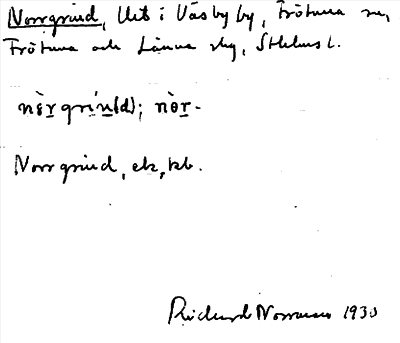 Norrgrind, Utt i Väsby by, Frötuna sn,
Frötuna och Länna skg, Sthlms l.
nòrgrin(d); nòr-
Norrgrind, ek, kb.
Rickard Norrman 1930